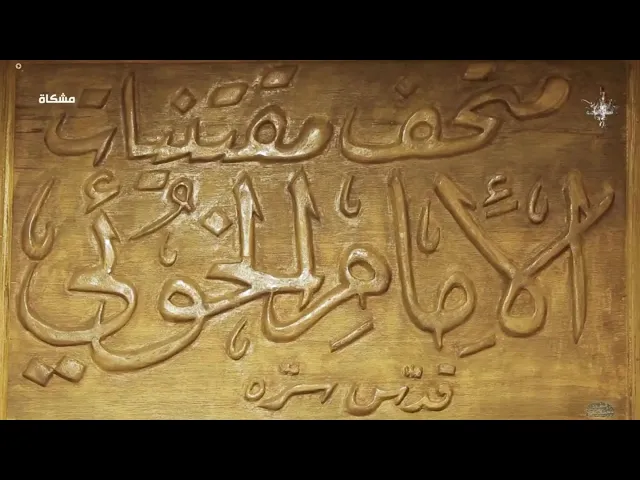 مشكاة
متحف مقتنيات
الإمام الخوئي
قدّس سرّه